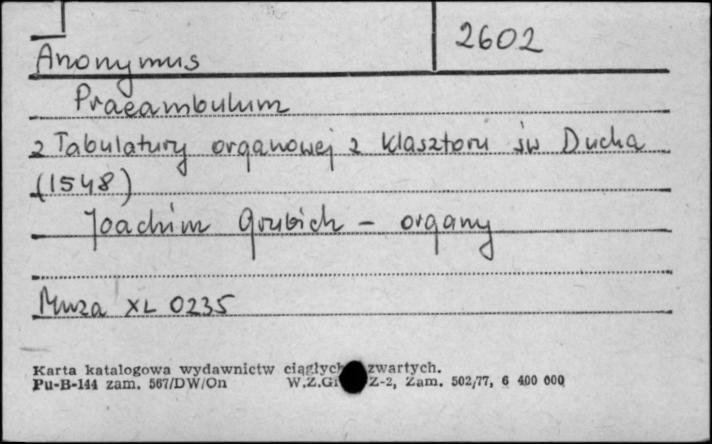 2602
Anonymus
Praeambulum
z Tabulatury organowej z klasztoru św Ducha
(1548)
Joachim Grubich - organy
Muza XL 0235
Karta katalogowa wydawnictw ciągłych zwartych.
Pu-B-144 zam. 567/DW/On W.Z.Gr Z-2, Zam. 502/77, 6 400 000